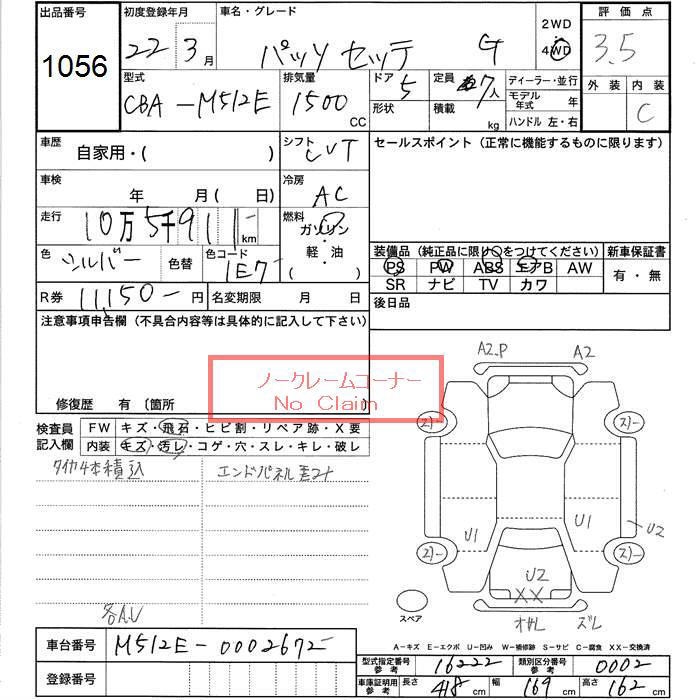 出品番号 初度登録年月 車名・グレード 2WD 評価点
1056 22 3月 パッソ セッテ G 4WD 3.5
型式 排気量 ドア 定員 ディーラー・並行 外装 内装
CBA-M512E 1500 CC 5 7人 モデル年式 年 C
形状 積載 kg ハンドル 左・右
車歴 自家用・( ) シフト CVT セールスポイント (正常に機能するものに限ります)
車検 年 月( 日) 冷房 AC
走行 10万5千911km 燃料 ガソリン・軽・油 ( )
色 シルバー 色替 色コード 1E7 装備品 (純正品に限り○をつけてください) 新車保証書
PS PW ABS エアB AW 有・無
SR ナビ TV カワ
R券 11,150-円 名変期限 月 日 後日品
注意事項申告欄 (不具合内容等は具体的に記入して下さい)
ノークレームコーナー
No Claim
修復歴 有 〔箇所
A2.P A2
検査員記入欄 FW キズ・飛石・ヒビ割・リペア跡・X要
内装 キズ・汚レ・コゲ・穴・スレ・キレ・破レ
タイヤ4本積込 エンドパネル
U1 U1 U2
U2
XX
スペア
各A.U
ズレ
車台番号 M512E-0002672
A-キズ E-エクボ U-凹み W-補修跡 S-サビ C-腐食 XX-交換済
登録番号 型式指定番号参考 16222 類別区分番号参考 0002
車庫証明用参考 長さ 418cm 幅 169cm 高さ 162cm